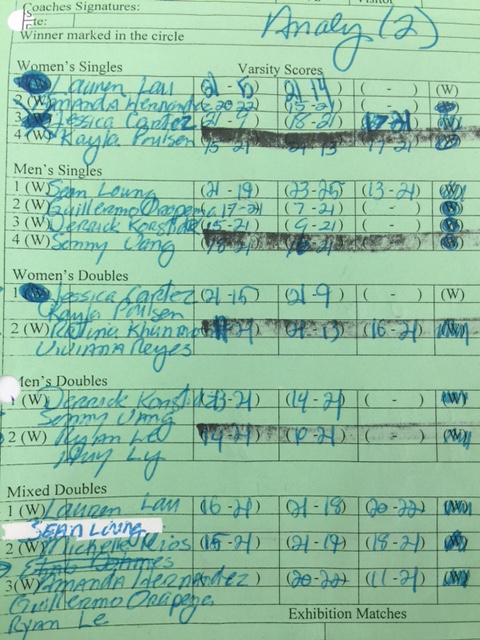 Coaches Signatures:
Winner marked in the circle
Analy (2)
Women's Singles Varsity Scores
1 (W) Lauren Lau (21 - 5) (21 - 14) ( - ) (W)
2 (W) Amanda Hernandez (20-22) (15-21) ( - )
3 Jessica Cartez (21 - 9) (18-21) (17-21)
4 (W) Kayla Poulsen (15-21) (21-13) (17-21)
Men's Singles
1 (W) Sean Leung (21 - 19) (23-25) (13-21) (W)
2 (W) Guillermo Oropeza (17-21) (7-21) ( - ) (W)
3 (W) Derrick (15-21) (9-21) ( - ) (W)
4 (W) Sonny Vang (18-21) ( -21) ( - ) (W)
Women's Doubles
1 Jessica Cartez (21-15) (21-9) ( - ) (W)
Kayla Poulsen
2 (W) ( -21) (21-13) (16-21) (W)
Viviana Reyes
Men's Doubles
1 (W) Derrick (13-21) (14-21) ( - ) (W)
Sonny Vang
2 (W) Ryan Le (14-21) ( -21) ( - ) (W)
Ly
Mixed Doubles
1 (W) Lauren Lau (16-21) (21-18) (20-22) (W)
Sean Leung
2 (W) Michelle Rios (15-21) (21-19) (18-21) (W)
3 (W) Amanda Hernandez (20-22) (11-21) (W)
Guillermo Oropeza
Ryan Le
Exhibition Matches